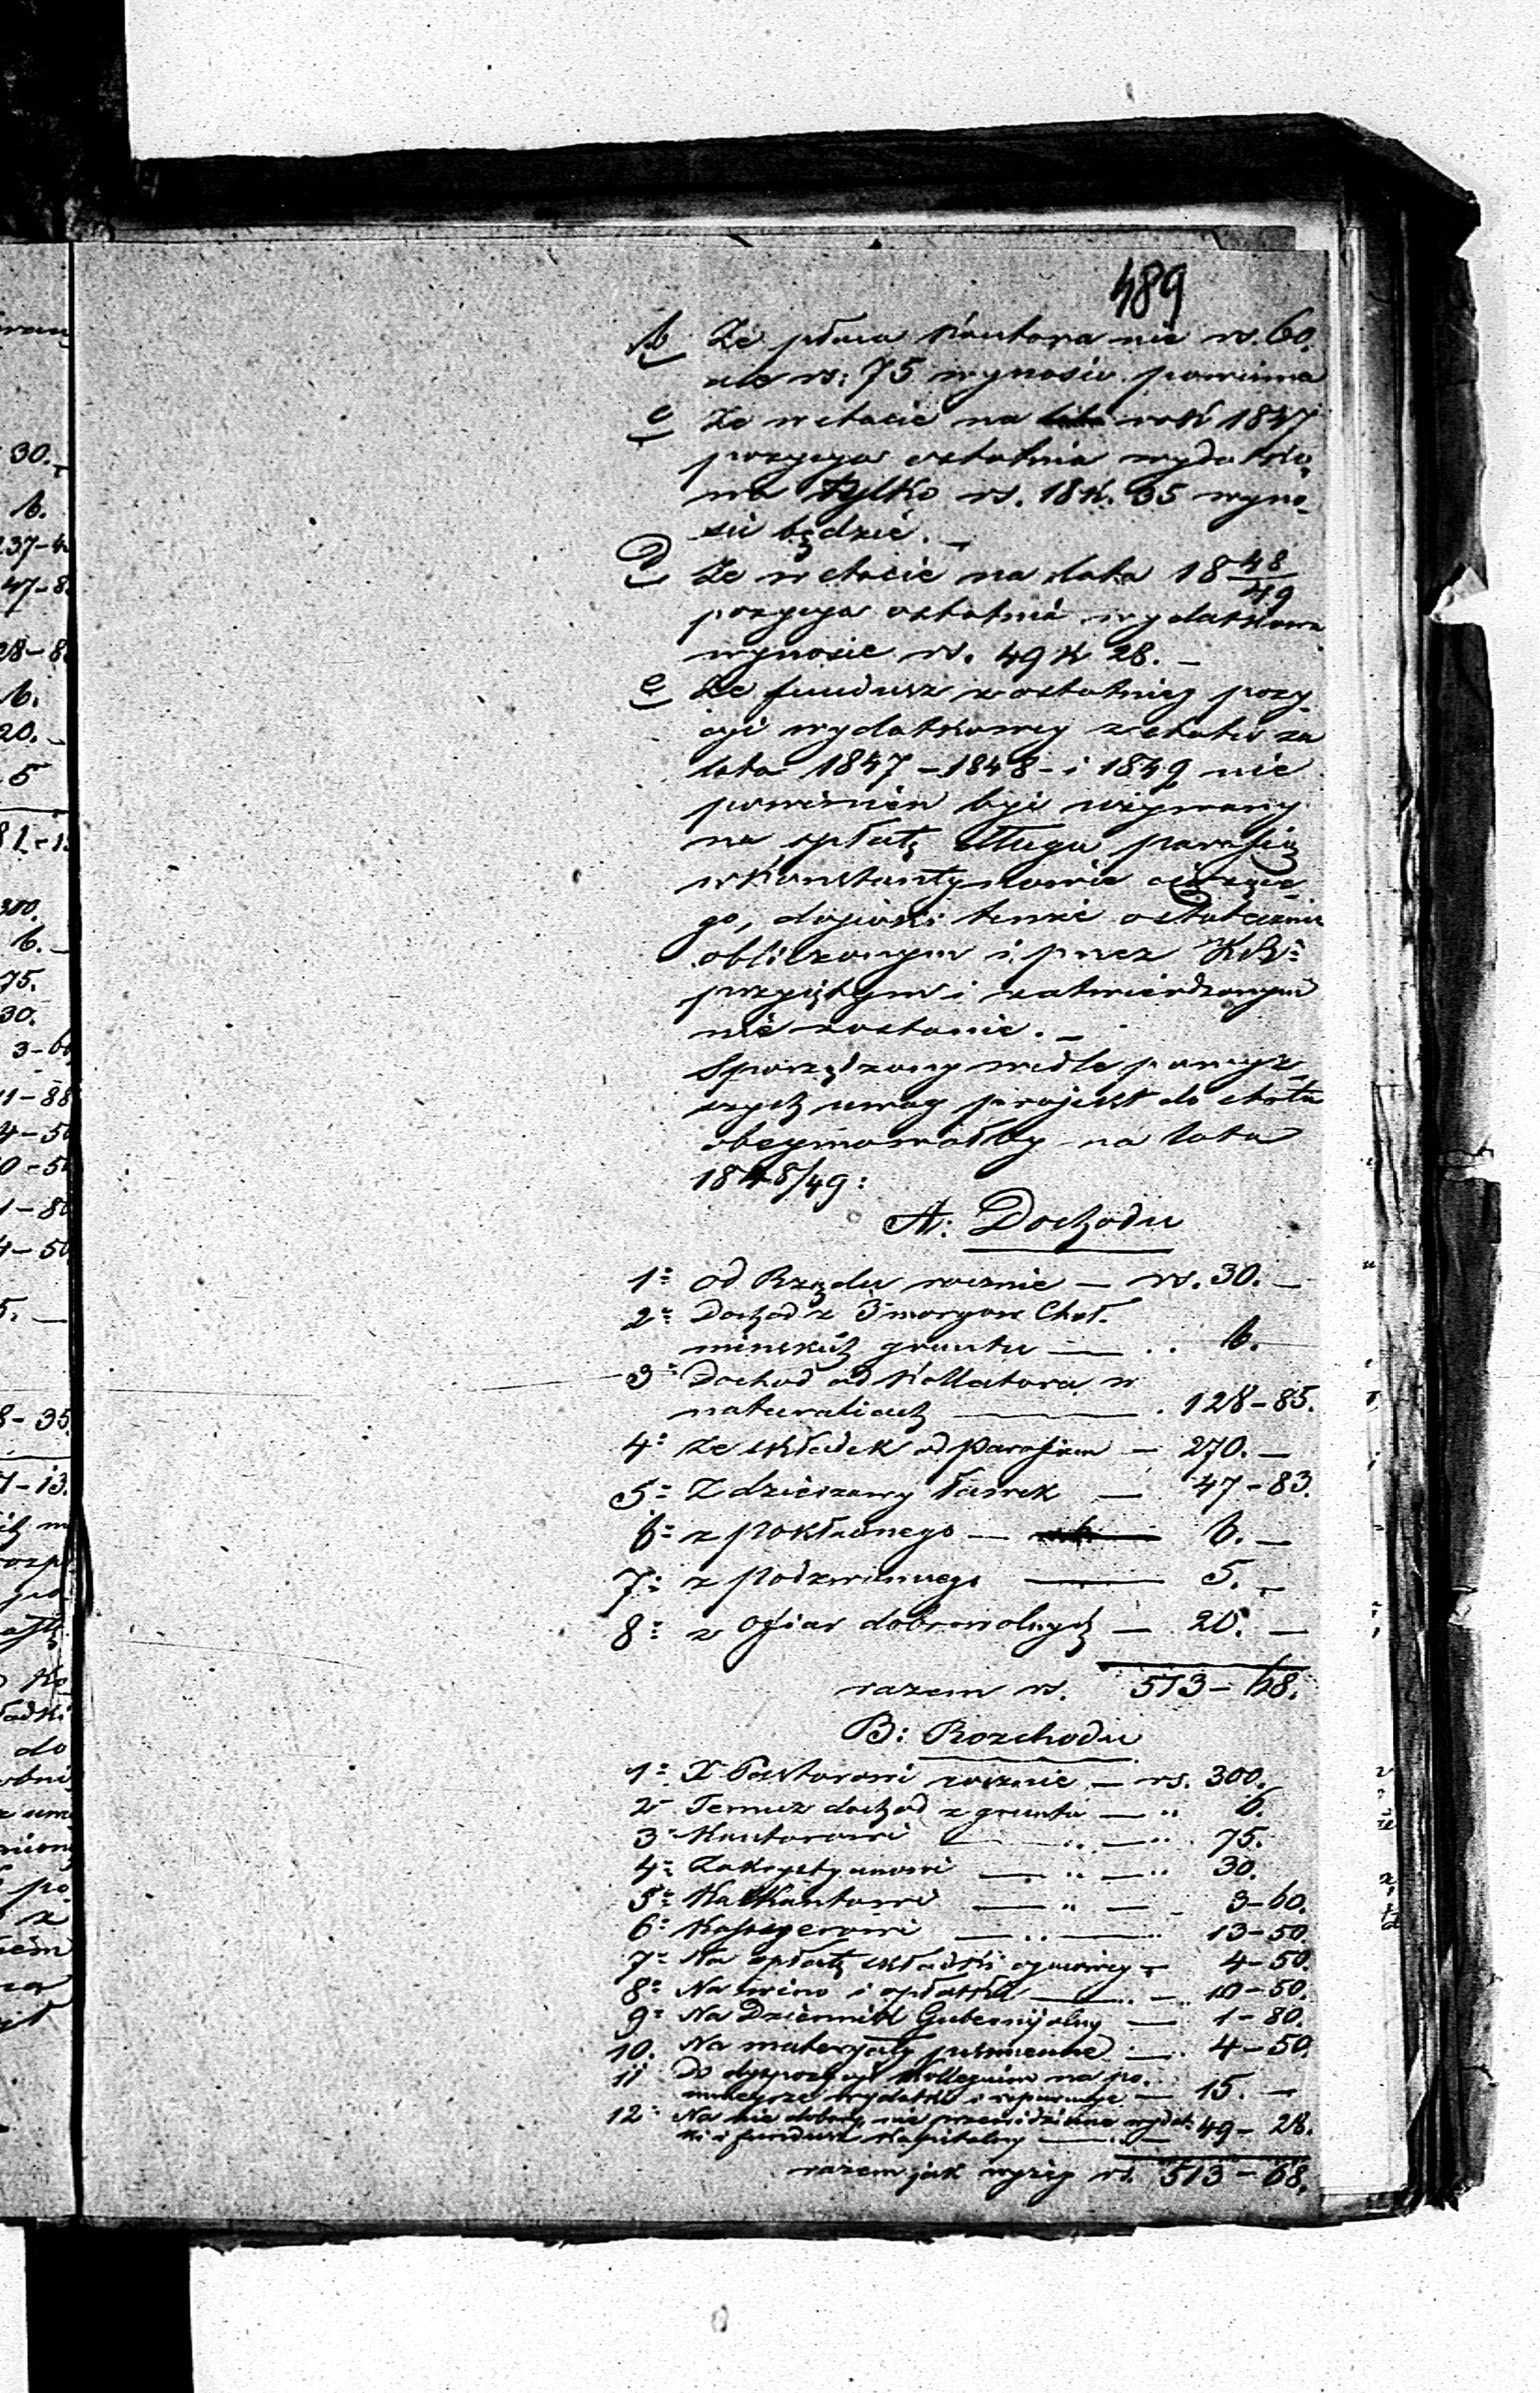 489
b Że płaca Kantora nie rs. 60.
ale rs: 75 wynosić powinna
c Że w etacie na rok 1847
pozycya ostatnia wydatko-
wa tylko rs. 18 k. 35 wyno-
sić będzie. –
D Że w etacie na lata 18 48/49
pozycya ostatnia wydatkowa
wynosić rs. 49 k 28. –
e Że fundusz z ostatniej pozy-
cyi wydatkowej z etatu za
lata 1847 – 1848 – i 1849 nie
powinien być używany
na spłatę długu parafią
w Konstantynowie ciążące-
go, dopóki tenże ostatecznie
obliczonym i przez KR
przyjętym i zatwierdzonym
nie zostanie. –
Sporządzony wedle powyż-
szych uwag projekt do etatu
obeymowałby na lata
1848/49:
A: Dochodu
1º od Rządu rocznie – rs. 30. –
2º Dochód z 3 morgów Cheł-
mińskich gruntu — .. 6.
3º Dochód od Kollatora w
naturaliach — . 128–85.
4º ze składek od Parafian – 270. –
5º Z dzierżawy ławek — 47–83.
6º z Pokładnego — 6. –
7º z Podzwonnego — 5. –
8º z ofiar dobrowolnych – 20. –
razem rs. 513–68.
B: Rozchodu
1º X Pastorowi rocznie – rs. 300.
2º Temuż dochód z gruntu — " 6.
3º Kantorowi — " — " 75.
4º Zakrystyanowi — " — " 30.
5º Kalikantowi — " — 3–60.
6º Kassyerowi — " — 13–50.
7º Na opłatę składki ogniowej – 4–50.
8º Na wino i opłatki — " – 10–50.
9º Na Dziennik Gubernijalny — 1–80.
10. Na materyały piśmienne — 4–50.
11 Do dyspozycyi Kollegium na po-
mniejsze wydatki i reperacye — 15. –
12º Na nie dobory nie przewidziane wydat-
ki i fundusz Kapitalny — 49–28.
razem jak wyżej rs. 513–68.
30.
6.
47–8
28–8
6.
20. –
5
300.
6. –
75.
30.
3–60
11–88
4–50
0–50
1–80
4–50
5. —
8–35.
1–13.
do
po
z